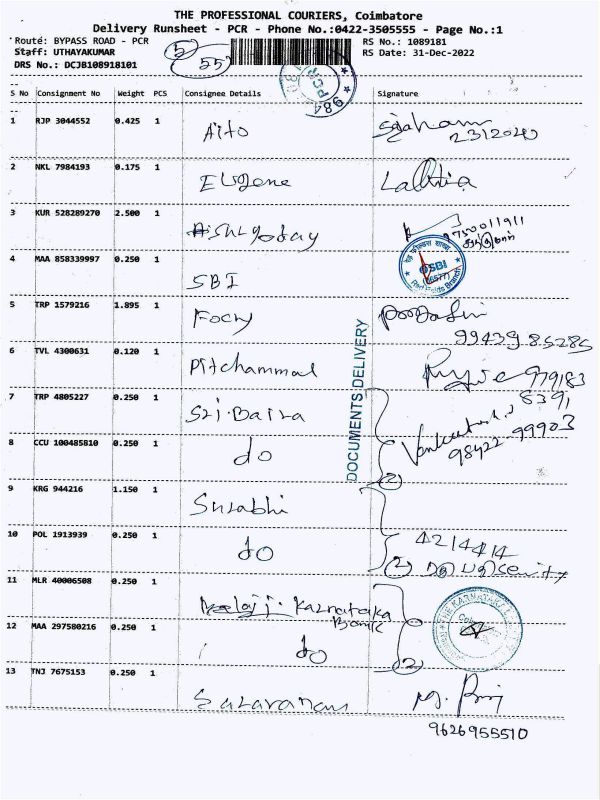 THE PROFESSIONAL COURIERS, Coimbatore
Delivery Runsheet - PCR - Phone No.:0422-3505555 - Page No.:1
Route: BYPASS ROAD - PCR RS No.: 1089181
Staff: UTHAYAKUMAR RS Date: 31-Dec-2022
DRS No.: DCJB108918101
5
55
PCR
984
S No Consignment No Weight PCS Consignee Details Signature
1 RJP 3044552 0.425 1 Aito
2 NKL 7984193 0.175 1 Eugene
3 KUR 528289270 2.500 1
9750011911
4 MAA 858339997 0.250 1 SBI
SBI
Red Fields Branch
5 TRP 1579216 1.895 1
99439 85285
6 TVL 4300631 0.120 1 Pitchammal
979183
8391
DOCUMENTS DELIVERY
7 TRP 4805227 0.250 1 Sri. Baira
98422-99903
8 CCU 100485810 0.250 1 do
2
9 KRG 944216 1.150 1 Surabhi
10 POL 1913939 0.250 1 do
4214414
2
11 MLR 40006508 0.250 1 Karnataka
Bank
THE KARNATAKA
12 MAA 297580216 0.250 1 do
2
13 TNJ 7675153 0.250 1 Saravanan
9626955510